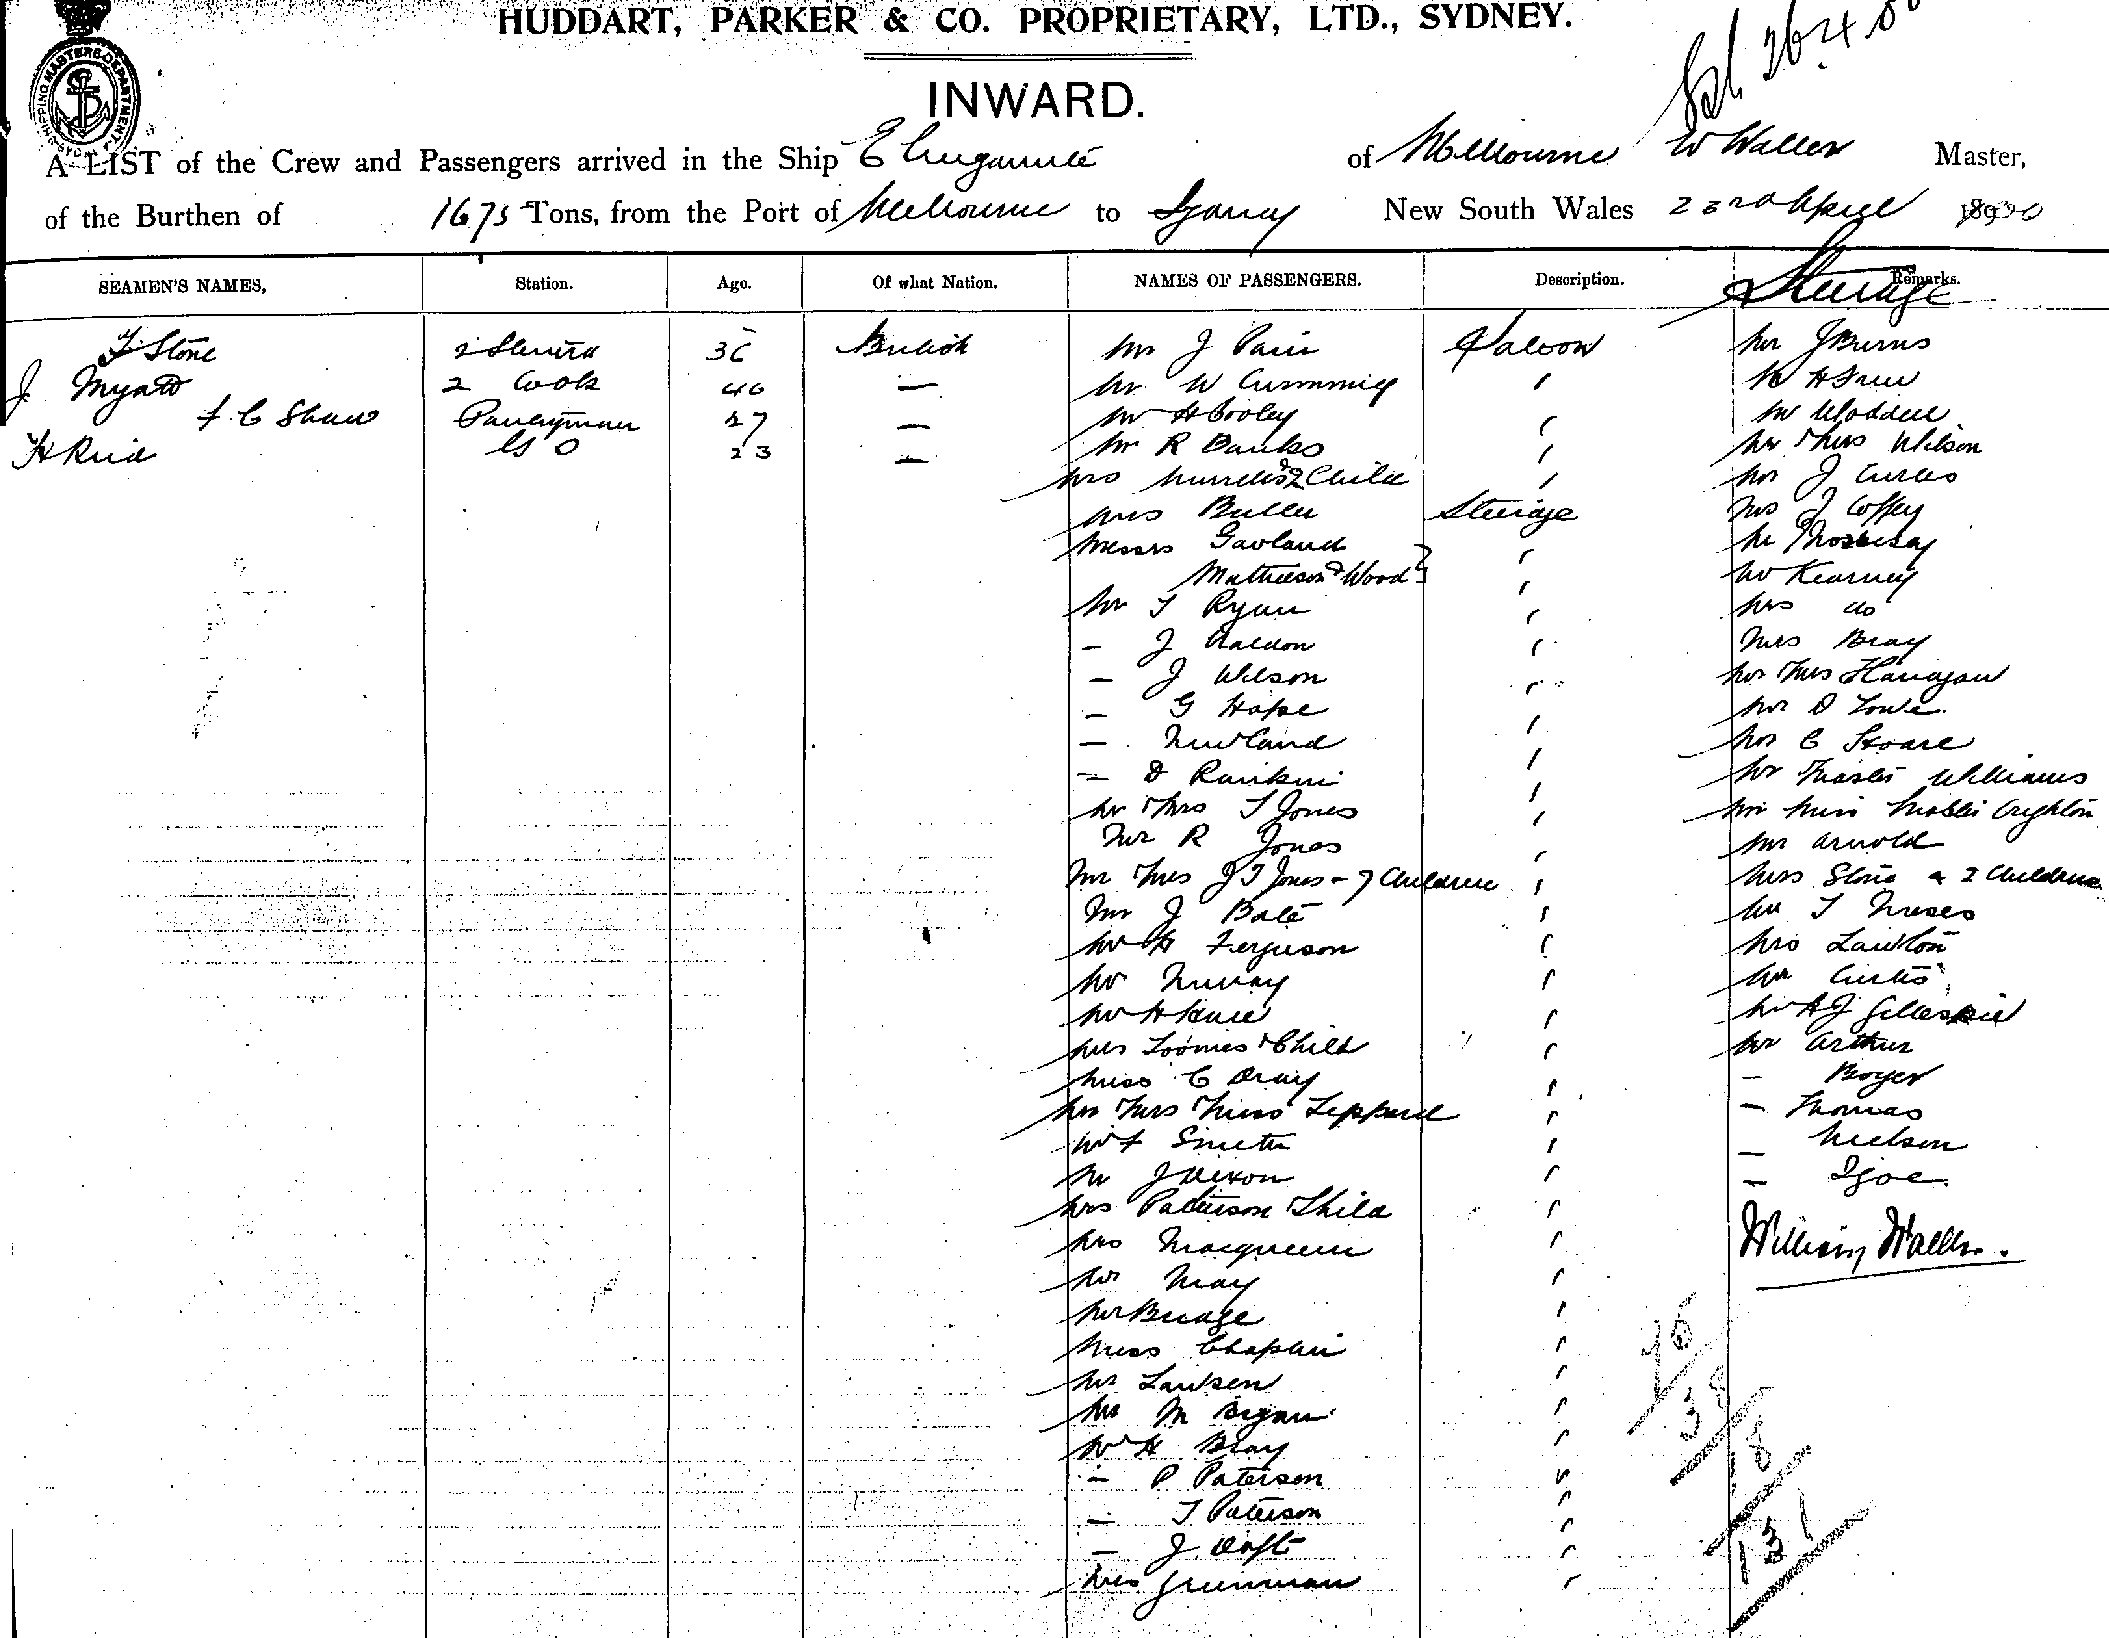 HUDDART, PARKER & CO. PROPRIETARY, LTD., SYDNEY.
INWARD.
SHIPPING MASTERS DEPARTMENT
A LIST of the Crew and Passengers arrived in the Ship Elingamite of Melbourne W Waller Master,
of the Burthen of 1675 Tons, from the Port of Melbourne to Sydney New South Wales 23rd April 1900
SEAMEN'S NAMES, Station. Age. Of what Nation. NAMES OF PASSENGERS. Description. Remarks.
Steerage
F Stone 2 Steward 36 British Mr J Pain Saloon Mr J Burns
J Myatt 2 Cook 40 — Mr W Cumming " Mr H
F C Shaw Pantryman 27 — Mr H Cooley " Mr Waddell
H Reid G S 23 — Mr R Banks " Mr & Mrs Wilson
Mrs & 2 Child " Mr J Curtis
Mrs Buller Steerage Mrs J Coffey
Messrs Garland " Mr
Mathieson & Wood } " Mr Kearney
Mr T Ryan " Mrs do
— J Haldon " Mrs Bray
— J Wilson " Mr & Mrs Flanagan
— G Hope " Mr D Lowe
— Newland " Mr C Hoare
— D Rankin " Mr & Master Williams
Mr & Mrs T Jones " Mr Miss Master Crighton
Mr R Jones " Mr Arnold
Mr & Mrs J T Jones - 7 Children " Mrs Stone & 2 Children
Mr J Bate " Mr T
Mr H Ferguson " Mrs Lawton
Mr Murray " Mr Curtis
Mr H " Mr A J Gillespie
Mrs Loomes & Child " Mr Arthur
Miss C Bray " — Boyer
Mr & Mrs & Miss Leppard " — Thomas
Mr F Smith " — Nielson
Mr J Dixon " —
Mrs Patterson & Child "
Mrs Macqueen " William Waller.
Mr May "
Mr Bridge "
Miss Chaplin " 96
Mr Lawson "
Mr M Bryan " 3
Mr H Bray " 18
— P Paterson "
— T Paterson "
— J Daft " 131
Mrs Greenman "